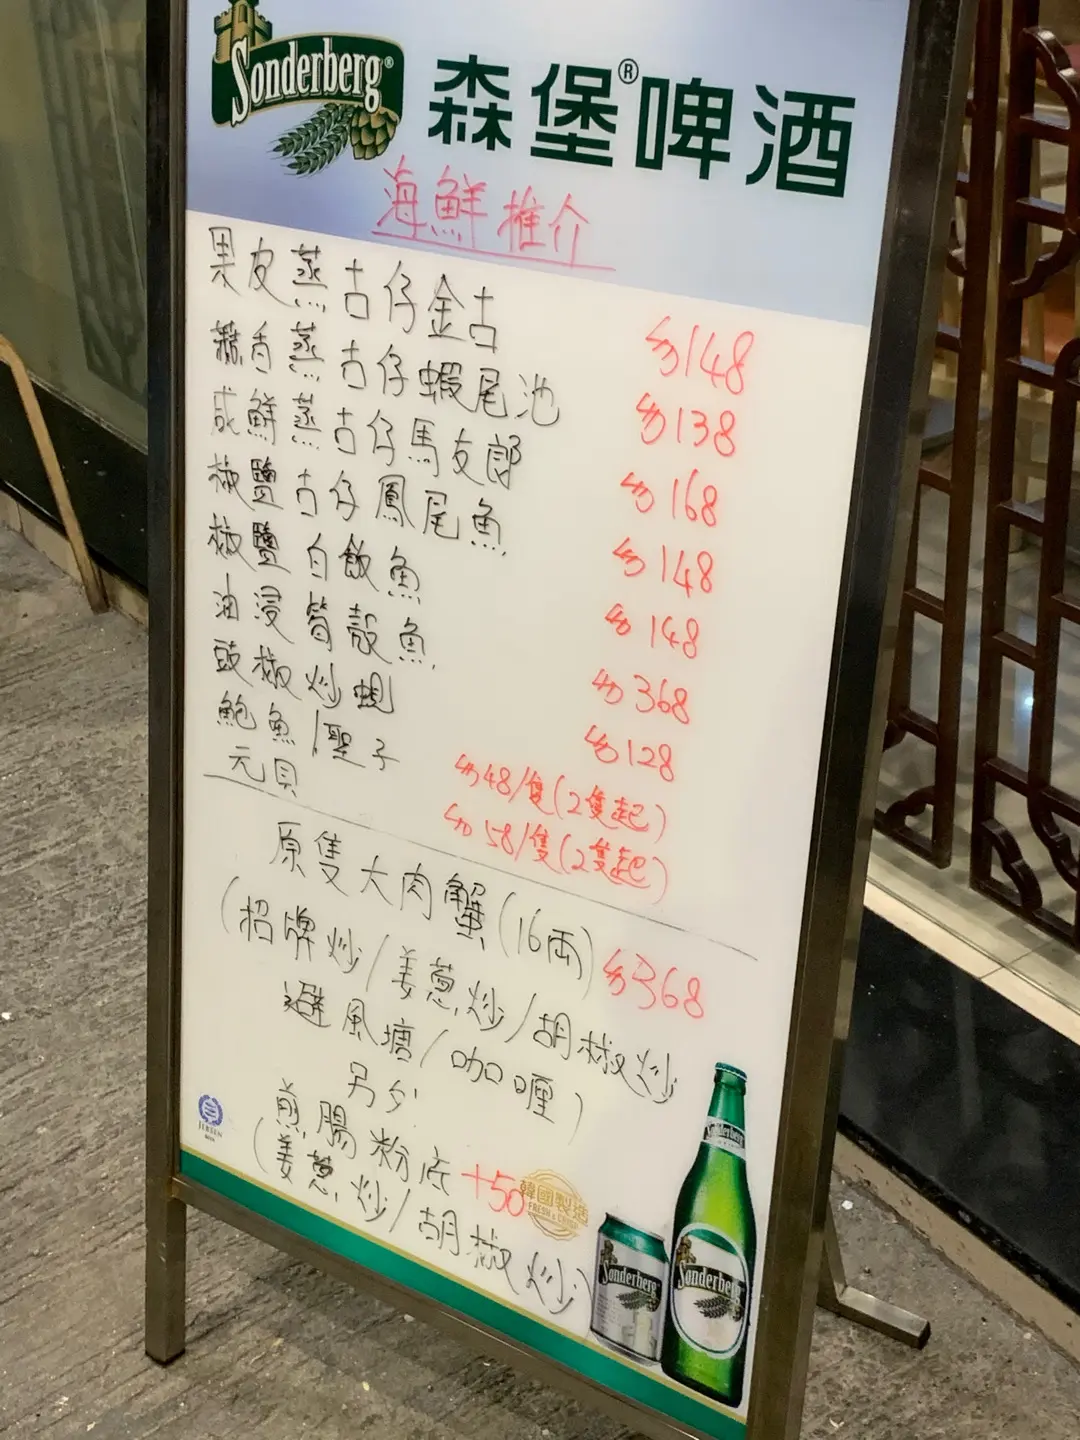 Sonderberg®
森堡®啤酒
海鮮推介
果皮蒸古仔金古 $148
蒜香蒸古仔蝦尾池 $138
咸鮮蒸古仔馬友郎 $168
椒鹽古仔鳳尾魚 $148
椒鹽白飯魚 $148
油浸筍殼魚 $368
豉椒炒蜆 $128
鮑魚/聖子 $48/隻(2隻起)
元貝 $58/隻(2隻起)
原隻大肉蟹(16両) $368
(招牌炒/姜蔥炒/胡椒炒
避風塘/咖喱)
另夕
煎腸粉底 +50
(姜蔥炒/胡椒炒)
JEBSEN
韓國製造
Sonderberg
Sonderberg
Sonderberg